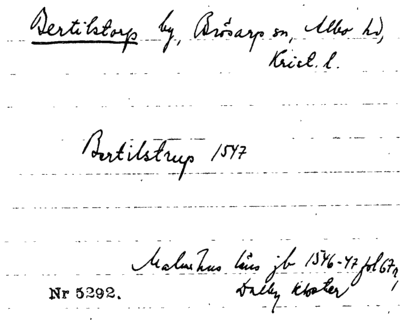 Bertilstorp by, Brösarp sn, Albo hd,
Krist. l.
Bertilstrup 1547
Malmöhus läns jb 1546-47 fol 67r,
Dalby kloster
Nr 5292.